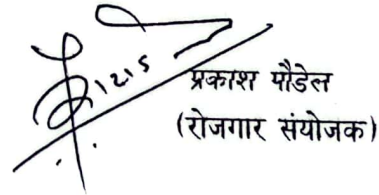 प्रकाश पौडेल
(रोजगार संयोजक)